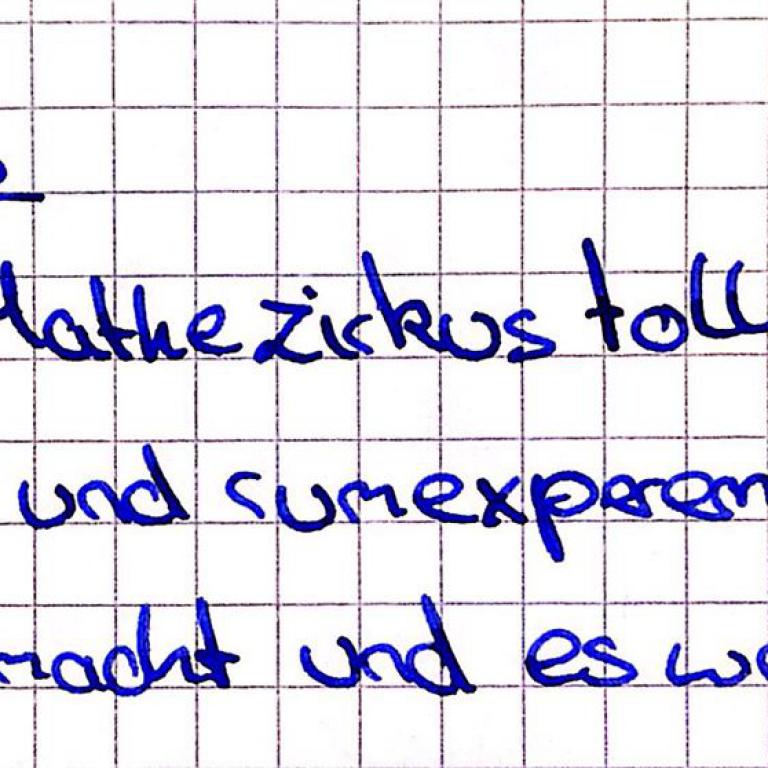 Mathezirkus toll
und rumexperem
macht und es wa